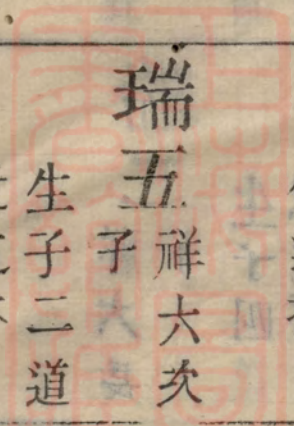 瑞五
祥六次
子
生子二道